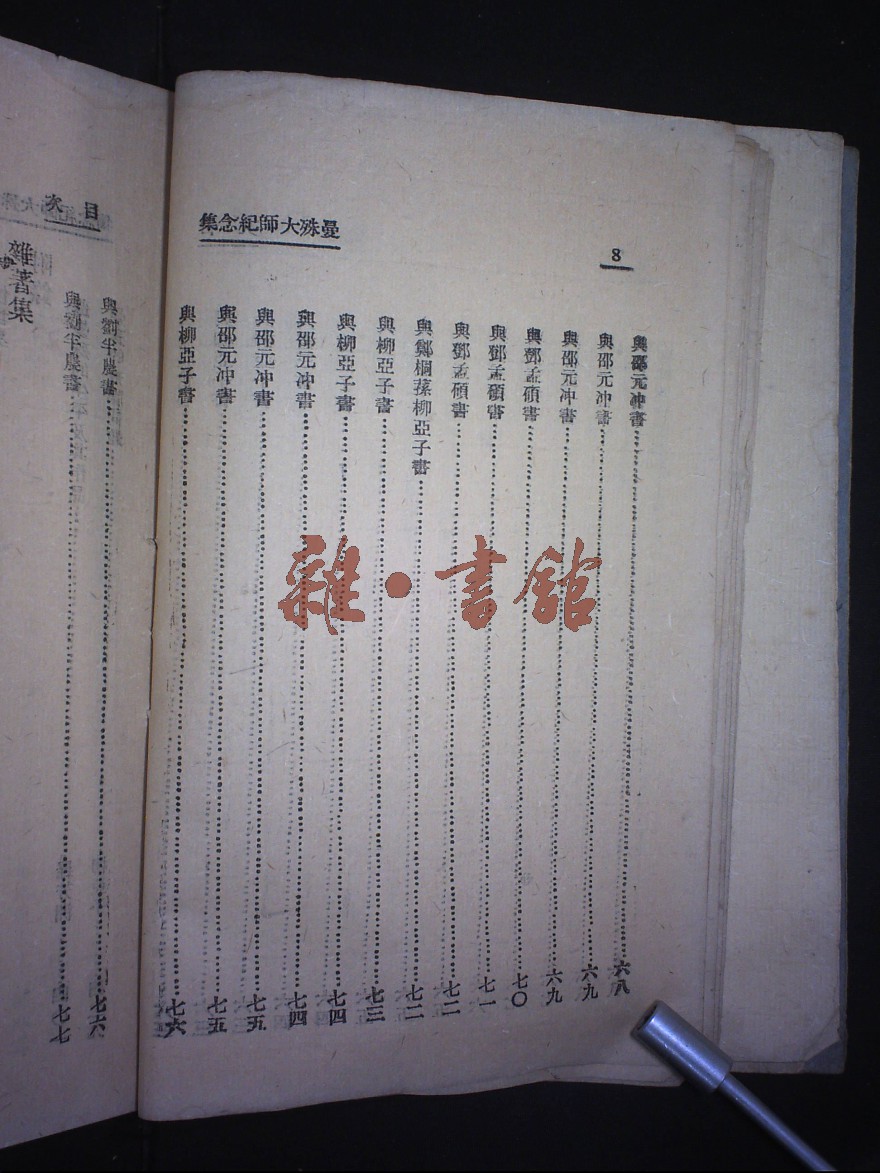 曼殊大師紀念集
8
與邵元冲書……六八
與邵元冲書……六九
與邵元冲書……六九
與鄧孟碩書……七〇
與鄧孟碩書……七一
與鄧孟碩書……七二
與鄭桐蓀柳亞子書……七二
與柳亞子書……七三
與柳亞子書……七四
與邵元冲書……七四
與邵元冲書……七五
與邵元冲書……七五
與柳亞子書……七六
目次
與劉半農書……七六
與劉半農書……七七
雜著集
雜·書館